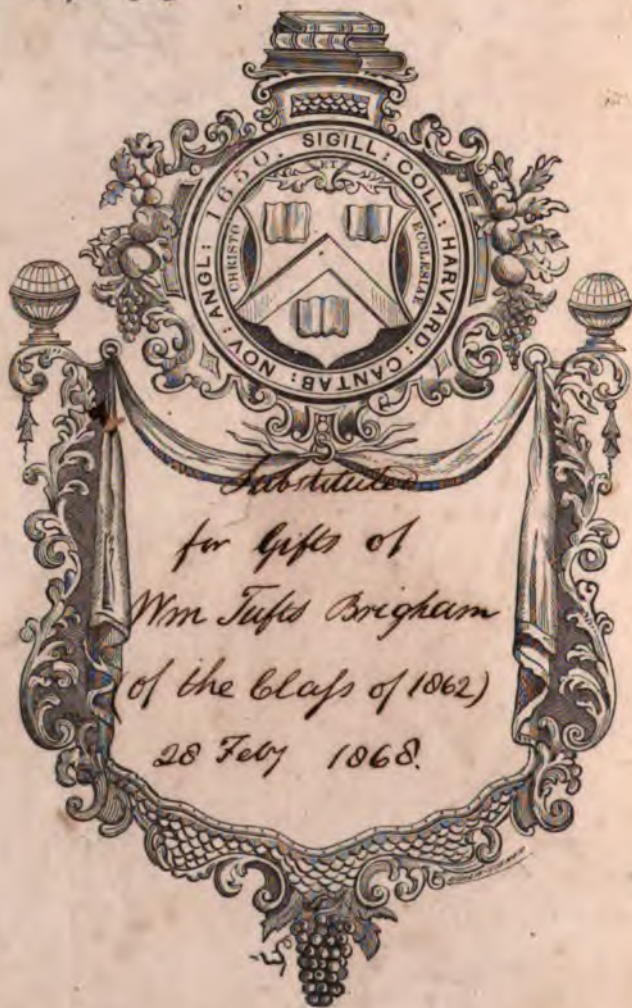 SIGILL: COLL: HARVARD: CANTAB: NOV: ANGL: 1650.
ET
CHRISTO
ECCLESIAE
Substituted
for Gifts of
Wm Tufts Brigham
(of the Class of 1862)
28 Feby 1868.